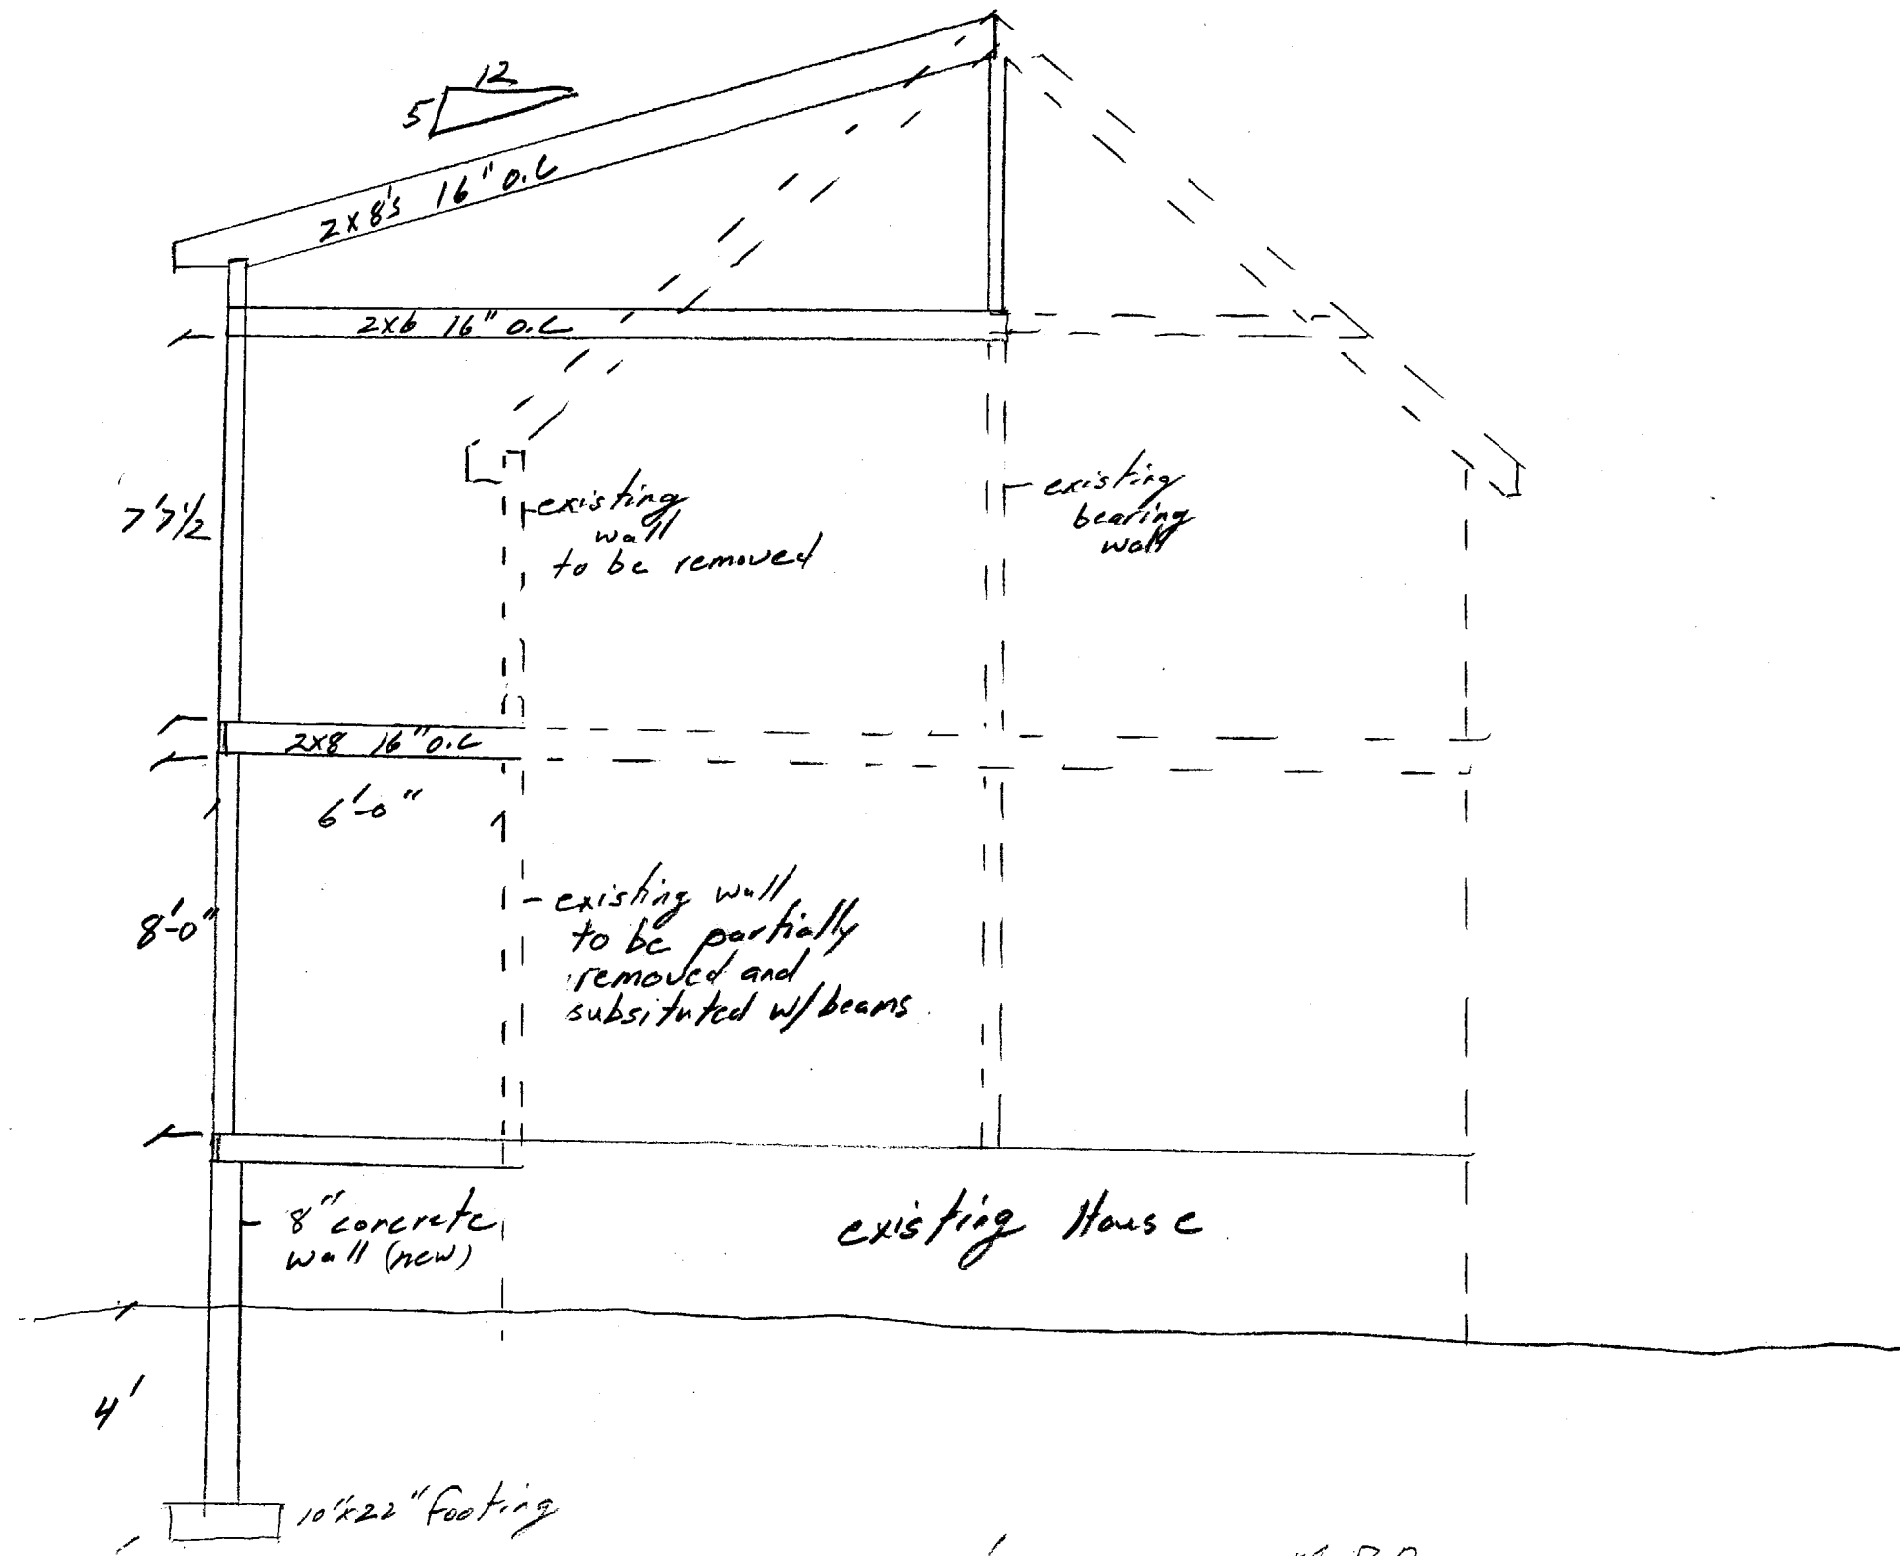 12
5
2x8's 16" o.c
2x6 16" o.c
7'7 1/2
existing
wall
to be removed
existing
bearing
wall
2x8 16" o.c
6'-0"
8'-0"
existing wall
to be partially
removed and
subsituted w/ beams
8" concrete
wall (new)
existing House
4'
10"x22" footing